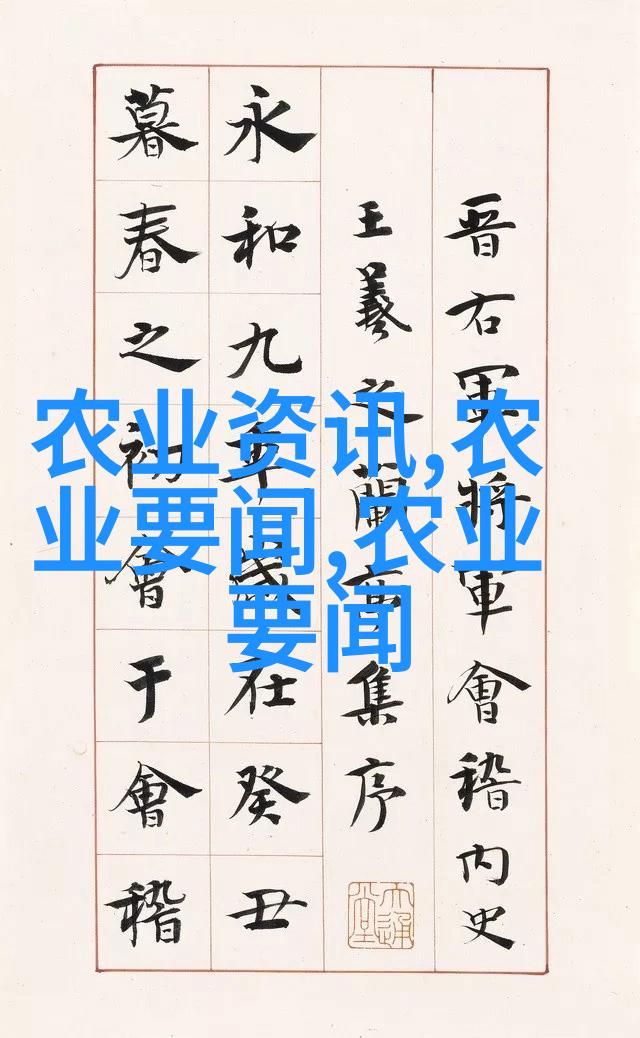 晋右軍将軍會稽内史
王羲之蘭亭集序
永和九年歲在癸丑
暮春之初會于會稽
农业资讯,农
业要闻,农业
要闻